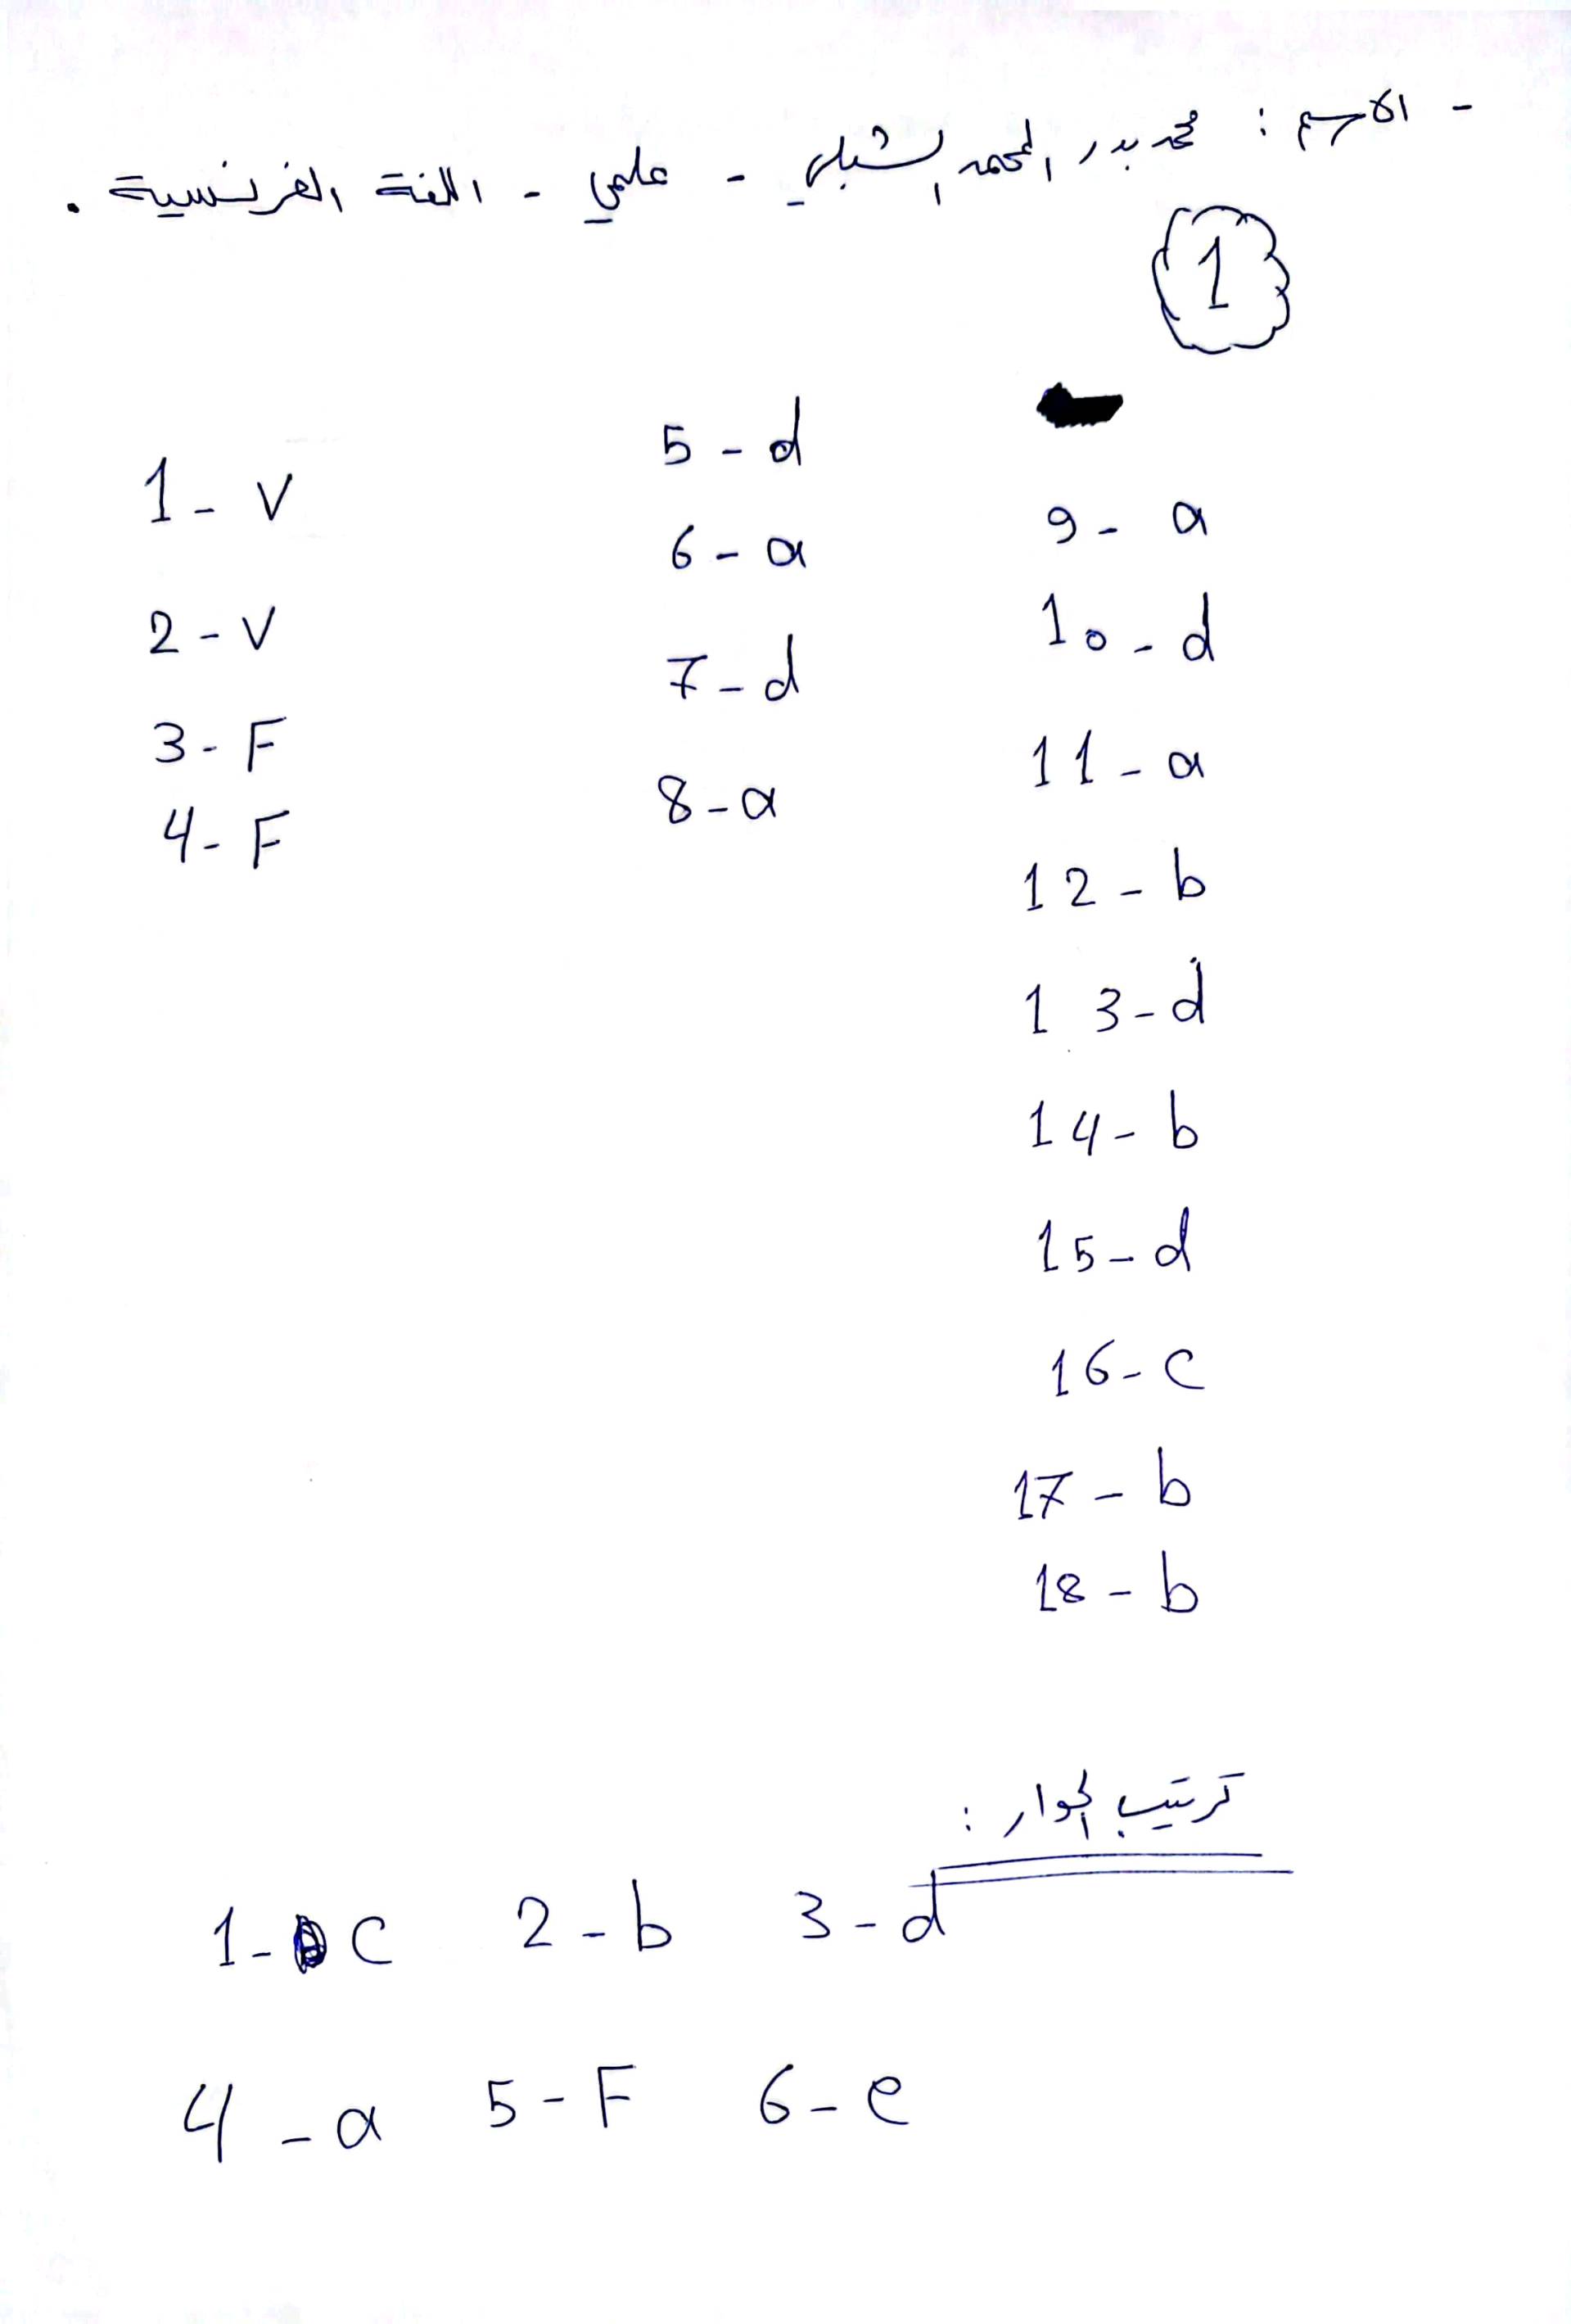 - الاسم : محمد بدر المحمد الشبلي - علمي - اللغة الفرنسية .
1
1 - V
2 - V
3 - F
4 - F
5 - d
6 - a
7 - d
8 - a
9 - a
10 - d
11 - a
12 - b
13 - d
14 - b
15 - d
16 - c
17 - b
18 - b
ترتيب الحوار :
1 - c 2 - b 3 - d
4 - a 5 - F 6 - e